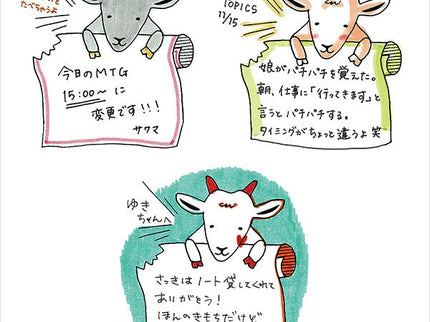 たべちゃうよ
今日のMTG
15:00〜に
変更です!!!
サクマ
TOPICS
11/15
娘がパチパチを覚えた。
朝、仕事に「行ってきます」と
言うとパチパチする。
タイミングがちょっと違うよ 笑
ゆき
ちゃんへ
さっきはノート貸してくれて
ありがとう!
ほんのきもちだけど